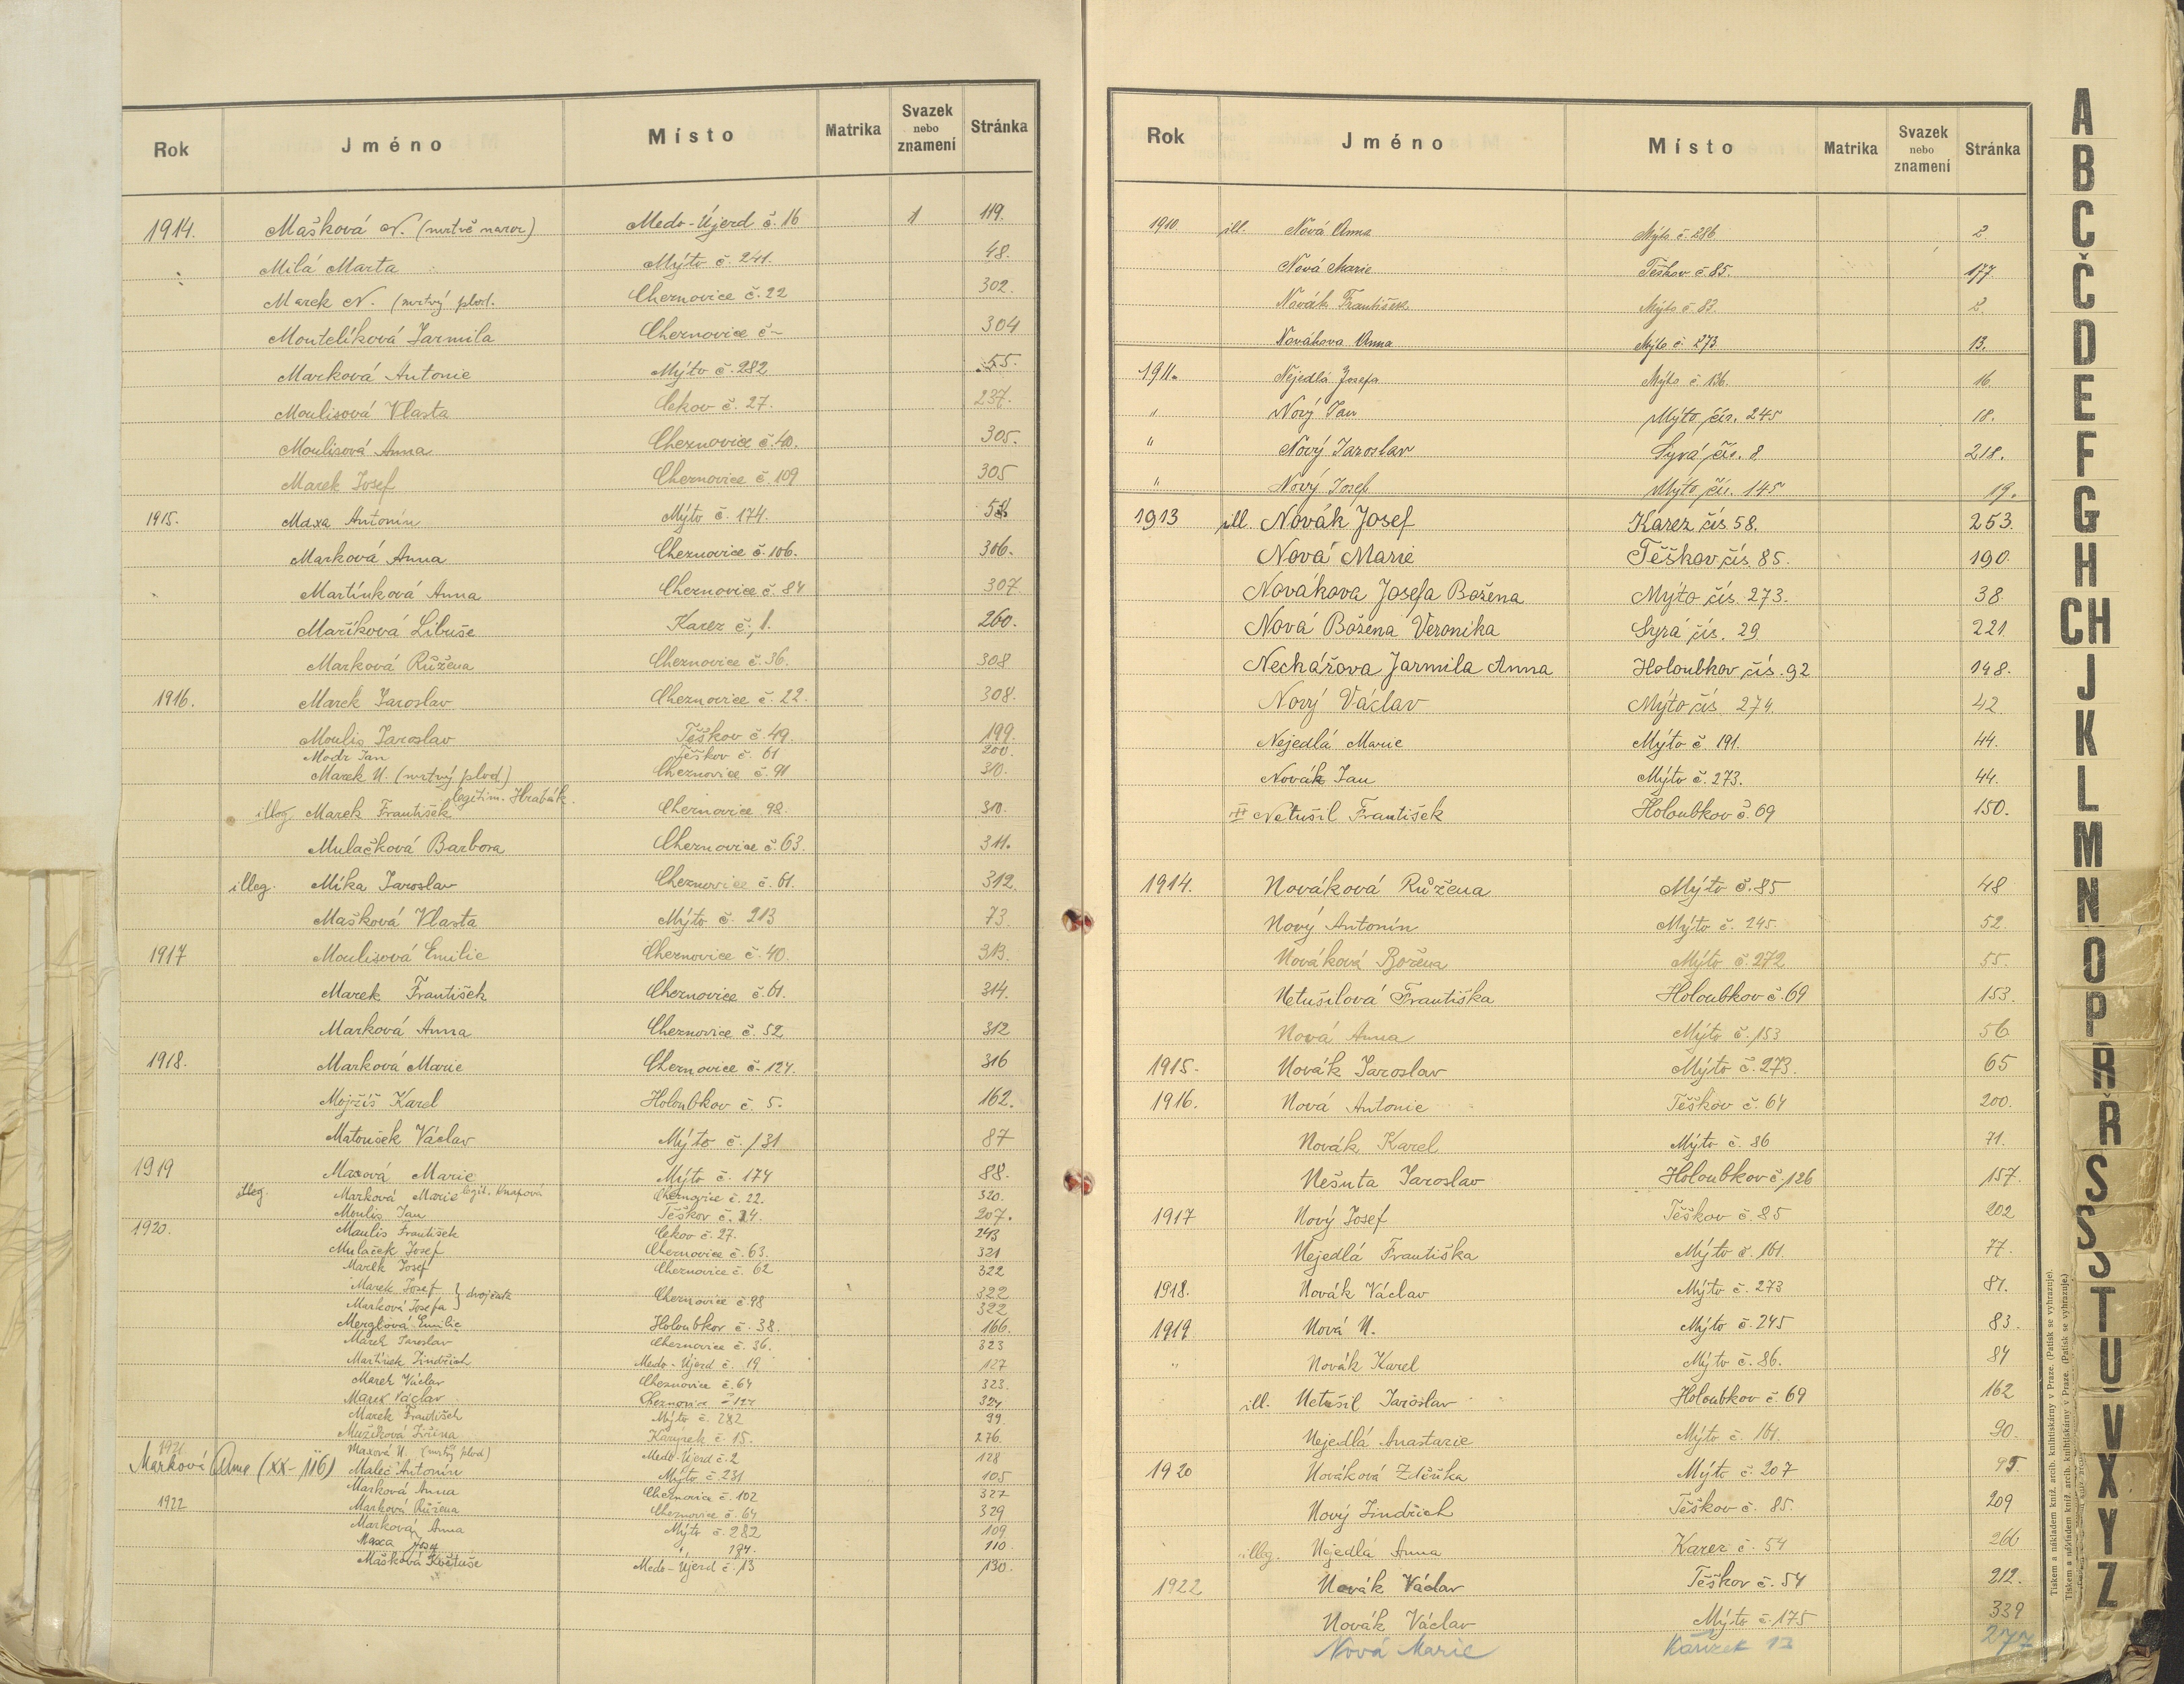 Rok Jméno Místo Matrika Svazek nebo znamení Stránka
1914. Mašková N. (mrtvě naroz) Medo-Újezd č. 16 1 119.
Milá Marta Mýto č. 241. 48.
Marek N. (mrtvý plod. Cheznovice č. 22 302.
Moutelíková Jarmila Cheznovice č- 304
Marková Antonie Mýto č. 282 55.
Moulisová Vlasta Cekov č. 27. 237.
Moulisová Anna Cheznovice č. 40. 305.
Marek Josef Cheznovice č. 109 305
1915. Maxa Antonín Mýto č. 174.
Marková Anna Cheznovice č. 106. 306.
Martínková Anna Cheznovice č. 84 307.
Maříková Libuše Karez č. 1. 260.
Marková Růžena Cheznovice č. 36. 308
1916. Marek Jaroslav Cheznovice č. 22. 308.
Moulis Jaroslav Těškov č. 49. 199.
Modr Jan Těškov č. 61 200.
Marek N. (mrtvý plod) Cheznovice č. 91 310.
legitim. Hrabák.
illeg. Marek František Cheznovice 98. 310.
Mulačková Barbora Cheznovice č. 63. 311.
illeg. Míka Jaroslav Cheznovice č. 61. 312.
Mašková Vlasta Mýto č. 213 73
1917 Moulisová Emilie Cheznovice č. 40. 313.
Marek František Cheznovice č. 61. 314.
Marková Anna Cheznovice č. 52 312
1918. Marková Marie Cheznovice č. 124. 316
Mojžíš Karel Holoubkov č. 5. 162.
Matoušek Václav Mýto č. 131 87
1919 Maxová Marie Mýto č. 174 88.
illeg. Marková Marie legit. Cheznovice č. 22. 320.
Moulis Jan Těškov č. 207.
1920. Moulis František Cekov č. 27. 243
Mulaček Josef Cheznovice č. 63. 321
Marek Josef Cheznovice č. 62 322
Marek Josef } dvojčata Cheznovice č. 98 322
Marková Josefa 322
Merglová Emilie Holoubkov č. 38. 166.
Marek Jaroslav Cheznovice č. 36. 323
Martínek Jindřich Medo-Újezd č. 19 127
Marek Václav Cheznovice č. 64 323.
Marek Václav Cheznovice č 124 324
Marek František Mýto č. 282 99.
Mužíková Jiřina Karýzek č. 15. 276.
1921. Maxová N. (mrtvý plod) Medo-Újezd č. 2 128
Marková Anna (XX-116) Maleč Antonín Mýto č. 231 105
Marková Anna Cheznovice č. 102 327
1922 Marková Růžena Cheznovice č. 64 329
Marková Anna Mýto č. 282 109.
Maxa Josef " 174. 110.
Mašková Květuše Medo-Újezd č. 13 130.
Rok Jméno Místo Matrika Svazek nebo znamení Stránka
1910 ill. Nová Anna Mýto č. 286 2.
Nová Marie Těškov č. 85. 177.
Novák František Mýto č 83. 2.
Nováková Anna Mýto č. 273 13.
1911. Nejedlá Josefa Mýto č. 136. 16.
" Nový Jan Mýto čís. 245 18.
" Nový Jaroslav Syrá čís. 8 218.
" Nový Josef Mýto čís. 145 19.
1913 ill. Novák Josef Karez čís 58. 253.
Nová Marie Těškov čís. 85. 190.
Novákova Josefa Božena Mýto čís. 273. 38
Nová Božena Veronika Syrá čís. 29 221.
Nechářova Jarmila Anna Holoubkov čís. 92 148.
Nový Václav Mýto čís. 274. 42
Nejedlá Marie Mýto č. 191. 44.
Novák Jan Mýto č. 273. 44.
Netušil František Holoubkov č. 69 150.
1914. Nováková Růžena Mýto č. 85 48
Nový Antonín Mýto č. 245. 52.
Nováková Božena Mýto č. 272 55.
Netušilová Františka Holoubkov č. 69 153.
Nová Anna Mýto č. 153 56
1915. Novák Jaroslav Mýto č. 273. 65
1916. Nová Antonie Těškov č. 64 200.
Novák Karel Mýto č. 86 71.
Nešuta Jaroslav Holoubkov č. 126 157.
1917 Nový Josef Těškov č. 85 202
Nejedlá Františka Mýto č. 161. 77.
1918. Novák Václav Mýto č. 273 81.
1919. Nová N. Mýto č. 245 83.
" Novák Karel Mýto č. 86. 84
ill. Netušil Jaroslav Holoubkov č. 69 162
Nejedlá Anastazie Mýto č. 161. 90.
1920 Nováková Zdeňka Mýto č. 207 95.
Nový Jindřich Těškov č. 85. 209
illeg. Nejedlá Anna Karez č. 54 266
1922 Novák Václav Těškov č. 54 212.
Novák Václav Mýto č. 175 339
Nová Marie Kařízek 13 277
A
B
C
Č
D
E
F
G
H
CH
J
K
L
M
N
O
P
R
Ř
S
Š
T
U
V
X
Y
Z
Tiskem a nákladem kníž. arcib. knihtiskárny v Praze. (Patisk se vyhrazuje).
Tiskem a nákladem kníž. arcib. knihtiskárny v Praze. (Patisk se vyhrazuje.)